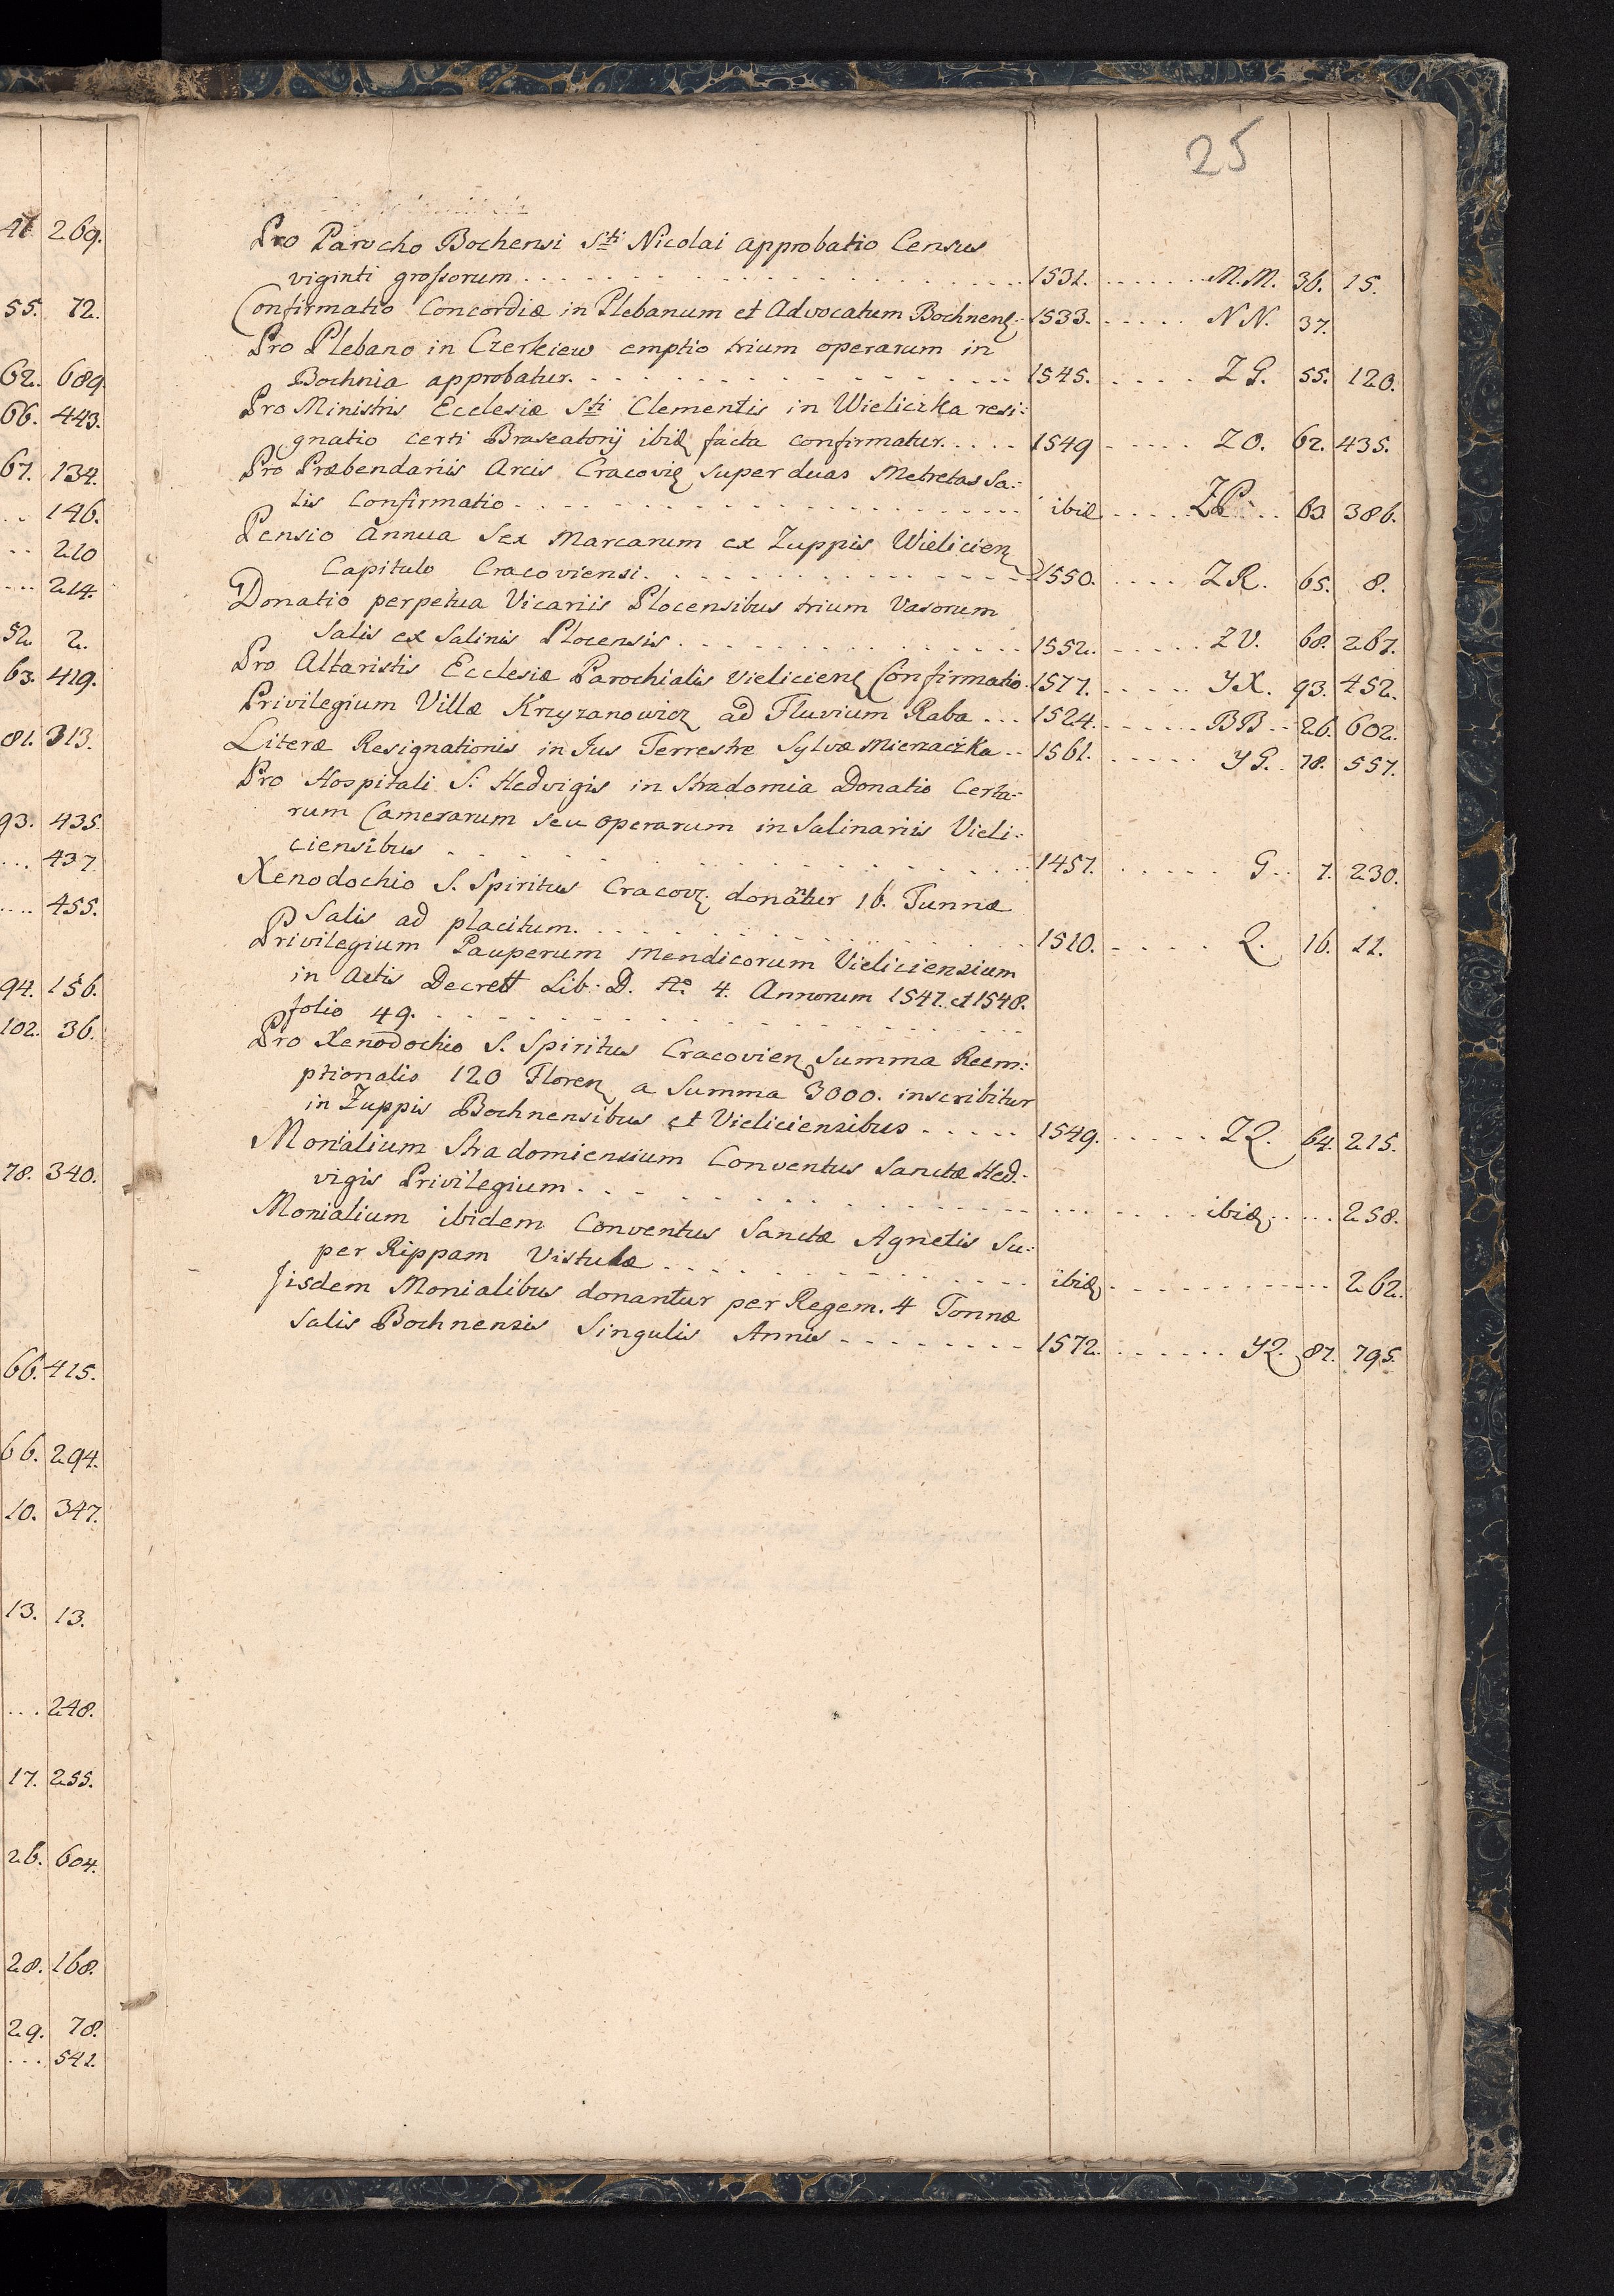 25
41. 269.
55. 72.
62. 689.
66. 443.
67. 134.
.. 146.
.. 210
... 214.
52. 2.
63. 419.
81. 313.
93. 435.
... 437
.... 455.
94. 156.
102. 36.
78. 340.
66. 415.
66. 294.
10. 347.
13. 13.
... 248.
17. 255.
26. 604.
28. 168.
29. 78.
... 541.
Pro Parocho Bochensi Sti Nicolai approbatio Census
viginti grossorum . . . . 1531. . . . . M.M. 36. 15.
Confirmatio Concordiæ in Plebanum et Advocatum Bochnenȝ. 1533. . . . . NN. 37.
Pro Plebano in Czerkiew emptio trium operarum in
Bochnia approbatur. . . . . 1545. . . . . ZG. 55. 120.
Pro Ministris Ecclesiæ Sti Clementis in Wieliczka resi:
gnatio certi Braseatorij ibiđ facta confirmatur. . . . . 1549 . . . . ZO. 62. 435.
Pro Præbendariis Arcis Cracovię super duas Metretas Sa:
lis Confirmatio . . . . ibiđ . . . . ZP. . . 63 386.
Pensio Annua Sex Marcarum ex Zuppis Wielicienȝ
Capitulo Cracoviensi. . . . . 1550. . . . . ZR. 65. 8.
Donatio perpetua Vicariis Plocensibus trium Vasorum
Salis ex Salinis Plocensis . . . . 1552. . . . . ZV. 68. 267.
Pro Altaristis Ecclesiæ Parochialis Vielicienȝ Confirmatio. 1577. . . . . YX. 93. 452.
Privilegium Villæ Krzyzanowicȝ ad Fluvium Raba . . . 1524. . . . . BB . . 26. 602.
Literæ Resignationis in Jus Terrestre Sylvæ Mierzaczka . . 1561. . . . . YG. . 78. 557.
Pro Hospitali S: Hedvigis in Stradomia Donatio Certa:
rum Camerarum seu operarum in Salinariis Vieli:
ciensibus . . . . 1457. . . . . G . . 7. 230.
Xenodochio S. Spiritus Cracovȝ. donantur 16. Tunnæ
Salis ad placitum. . . . . 1510. . . . . Q. 16. 11.
Privilegium Pauperum Mendicorum Vieliciensium
in Actis Decrett Lib: D. No 4. Annorum 1547. et 1548.
folio 49. . . . .
Pro Xenodochio S. Spiritus Cracovienȝ Summa Reem:
ptionalis 120 Florenȝ a Summa 3000. inscribitur
in Zuppis Bochnensibus et Vieliciensibus . . . . . 1549. . . . . ZQ. 64. 215.
Monialium Stradomiensium Conventus Sanctæ Hed:
vigis Privilegium . . . . . . . . ibiđ. . . . . 258.
Monialium ibidem Conventus Sanctæ Agnetis Su:
per Rippam Vistulæ . . . . ibiđ . . . . 262.
Jisdem Monialibus donantur per Regem. 4 Tonnæ
Salis Bochnensis Singulis Annis . . . . 1572. . . . . YQ. 87. 795.